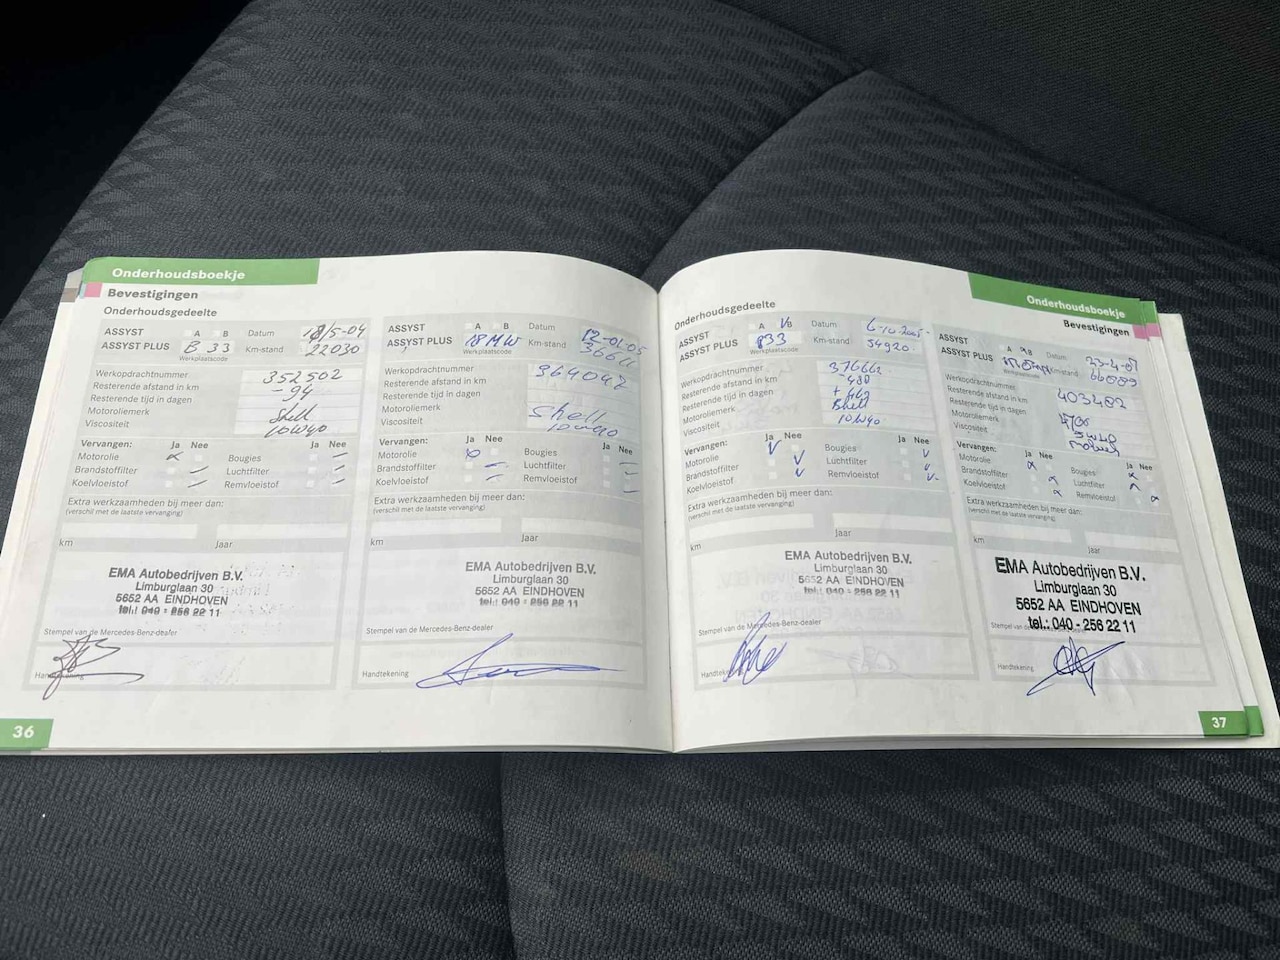 Onderhoudsboekje
Bevestigingen
Onderhoudsgedeelte
ASSYST A B Datum 18/5-04
ASSYST PLUS B 33 Km-stand 22030
Werkplaatscode
Werkopdrachtnummer 352502
Resterende afstand in km -94
Resterende tijd in dagen
Motoroliemerk Shell
Viscositeit 10W40
Vervangen: Ja Nee Ja Nee
Motorolie Bougies
Brandstoffilter Luchtfilter
Koelvloeistof Remvloeistof
Extra werkzaamheden bij meer dan:
(verschil met de laatste vervanging)
km Jaar
EMA Autobedrijven B.V.
Limburglaan 30
5652 AA EINDHOVEN
tel.: 040 - 256 22 11
Stempel van de Mercedes-Benz-dealer
Handtekening
36
ASSYST A B Datum 12-01-05
ASSYST PLUS Km-stand 36611
Werkplaatscode
Werkopdrachtnummer 364042
Resterende afstand in km
Resterende tijd in dagen
Motoroliemerk Shell
Viscositeit 10W40
Vervangen: Ja Nee Ja Nee
Motorolie Bougies
Brandstoffilter Luchtfilter
Koelvloeistof Remvloeistof
Extra werkzaamheden bij meer dan:
(verschil met de laatste vervanging)
km Jaar
EMA Autobedrijven B.V.
Limburglaan 30
5652 AA EINDHOVEN
tel.: 040 - 256 22 11
Stempel van de Mercedes-Benz-dealer
Handtekening
Onderhoudsgedeelte
ASSYST A B Datum 6-10-2005
ASSYST PLUS Km-stand 54920
Werkplaatscode
Werkopdrachtnummer 376662
Resterende afstand in km -480
Resterende tijd in dagen
Motoroliemerk Shell
Viscositeit 10W40
Vervangen: Ja Nee Ja Nee
Motorolie Bougies
Brandstoffilter Luchtfilter
Koelvloeistof Remvloeistof
Extra werkzaamheden bij meer dan:
(verschil met de laatste vervanging)
km Jaar
EMA Autobedrijven B.V.
Limburglaan 30
5652 AA EINDHOVEN
tel.: 040 - 256 22 11
Stempel van de Mercedes-Benz-dealer
Onderhoudsboekje
Bevestigingen
ASSYST A B Datum
ASSYST PLUS Km-stand
Werkplaatscode
Werkopdrachtnummer 403482
Resterende afstand in km
Resterende tijd in dagen
Motoroliemerk
Viscositeit
Vervangen: Ja Nee Ja Nee
Motorolie Bougies
Brandstoffilter Luchtfilter
Koelvloeistof Remvloeistof
Extra werkzaamheden bij meer dan:
(verschil met de laatste vervanging)
km Jaar
EMA Autobedrijven B.V.
Limburglaan 30
5652 AA EINDHOVEN
tel.: 040 - 256 22 11
Stempel van de Mercedes-Benz-dealer
Handtekening
37